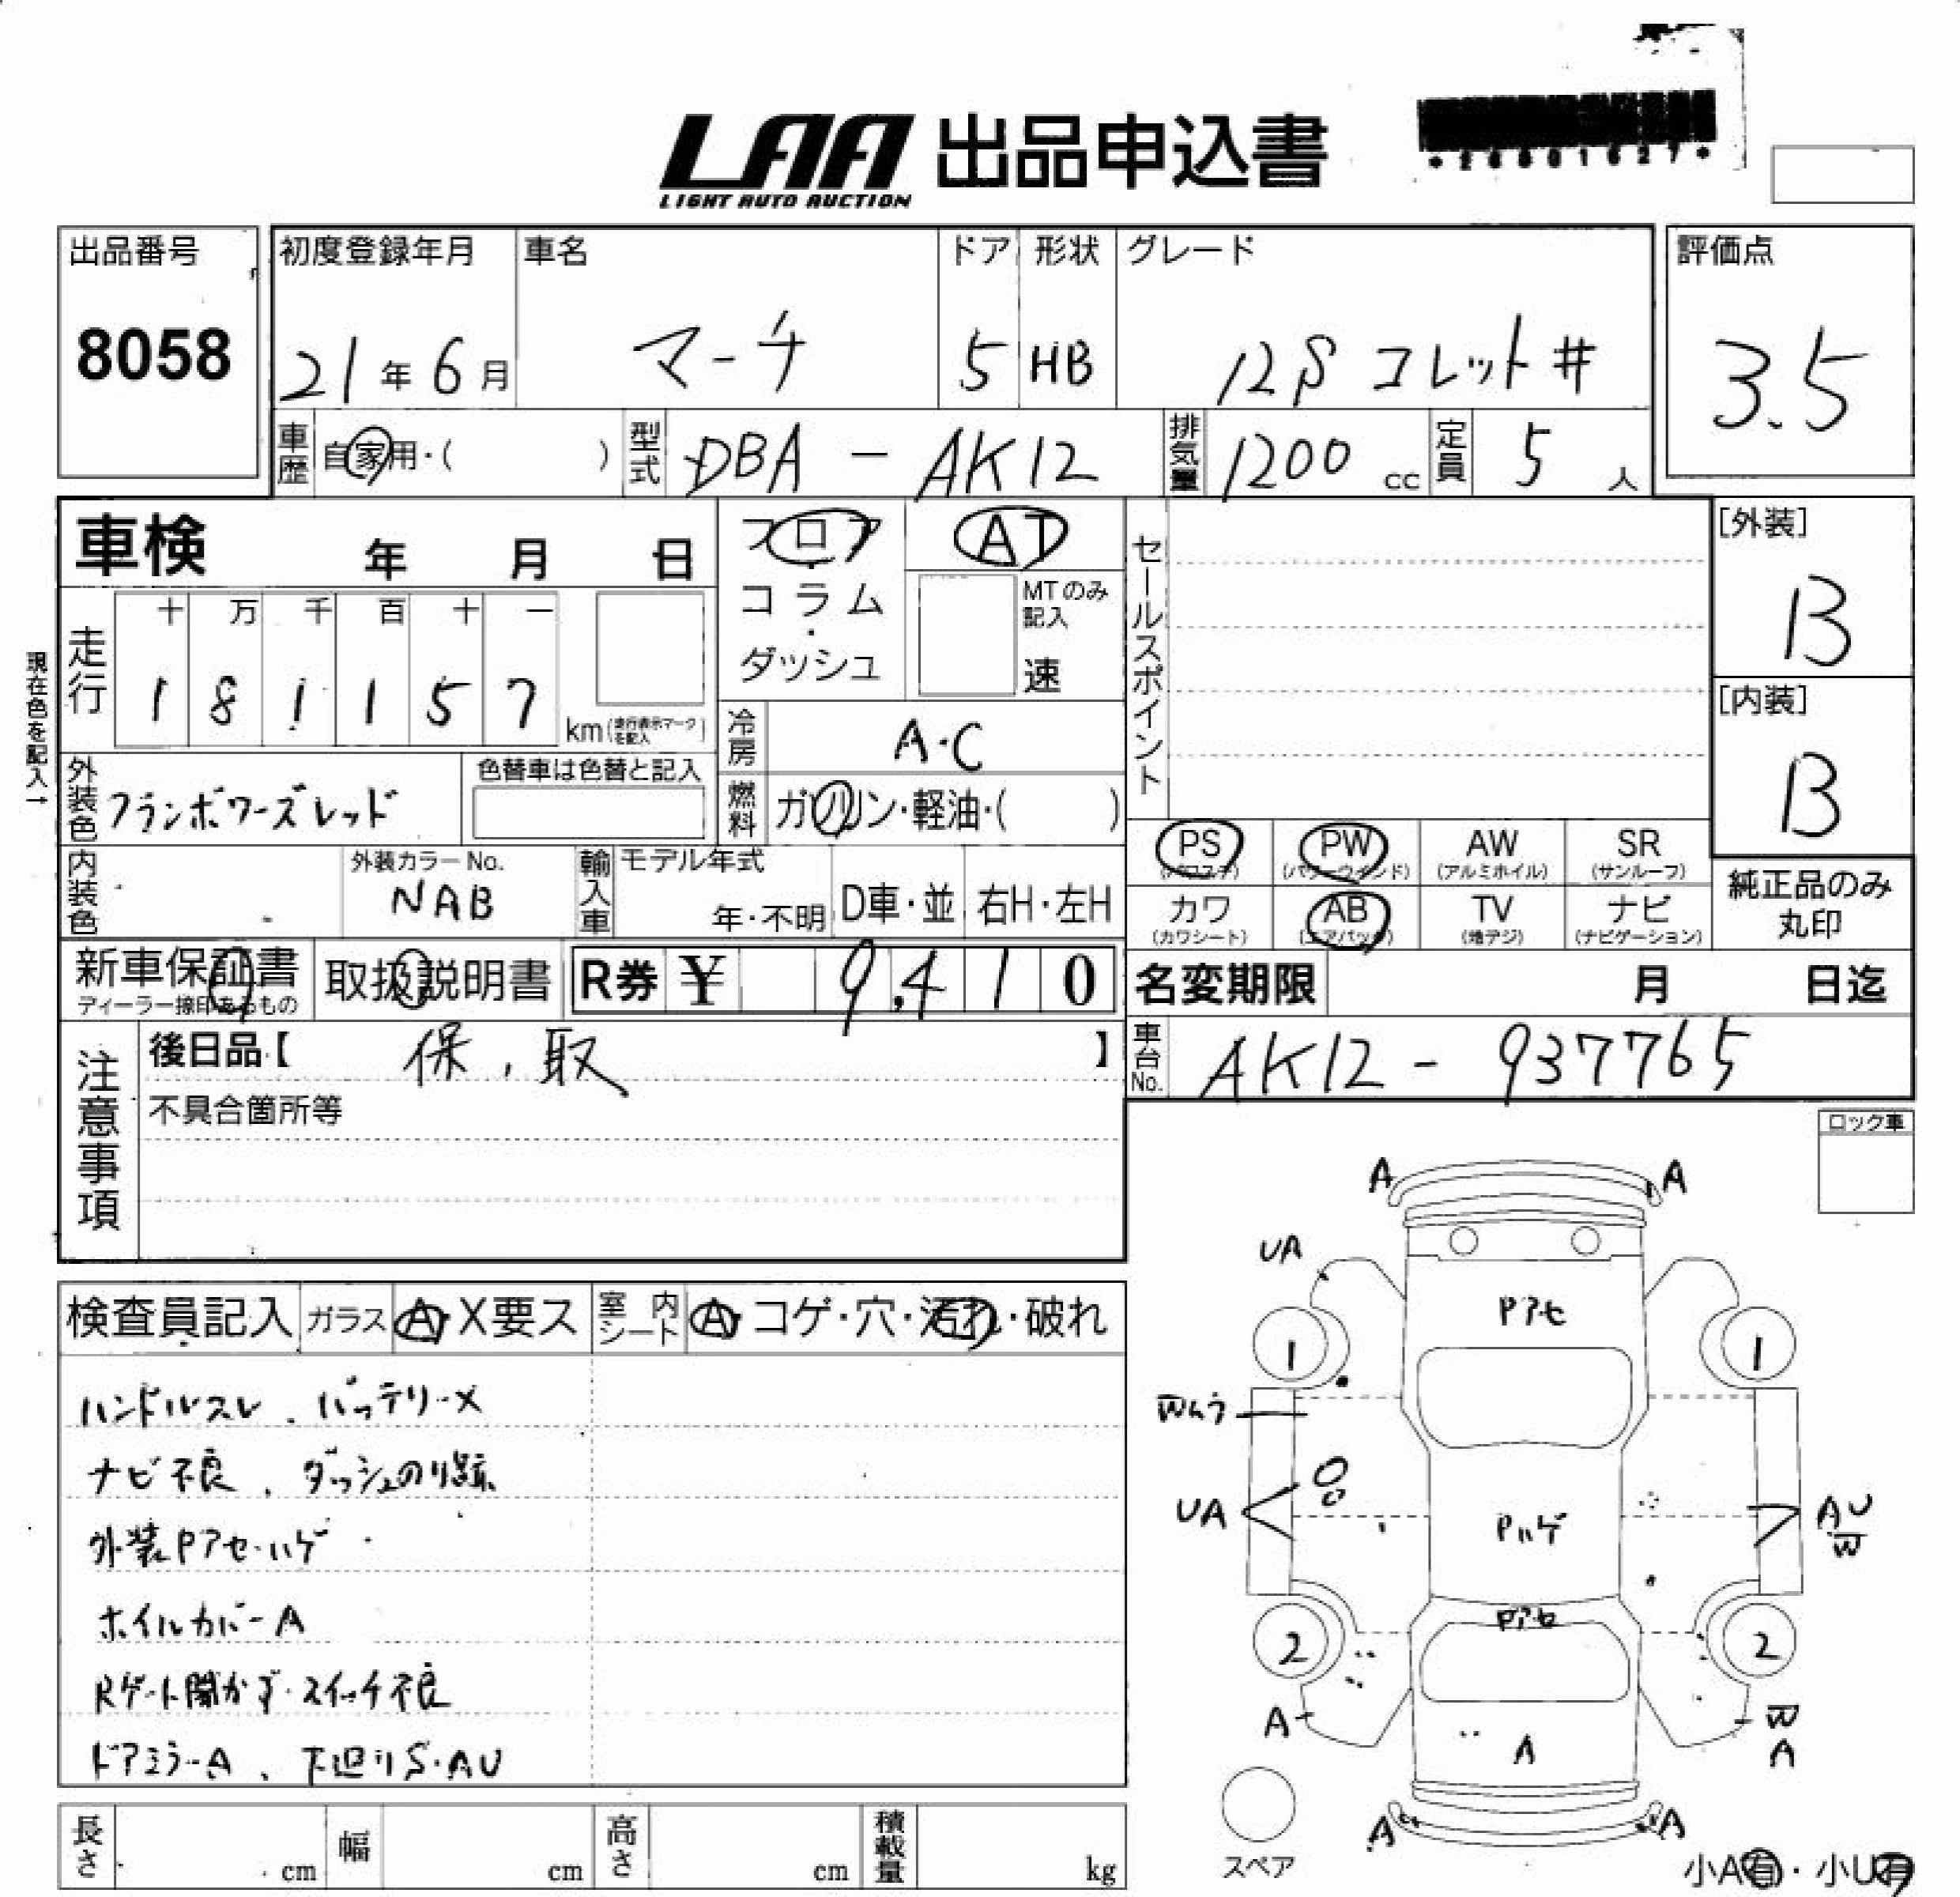 LAA 出品申込書
LIGHT AUTO AUCTION
出品番号
8058
初度登録年月
21年6月
車名
マーチ
ドア
5
形状
HB
グレード
12S コレット#
評価点
3.5
車歴 自家用・( )
型式 DBA - AK12
排気量 1200 cc
定員 5 人
車検 年 月 日
フロア・コラム・ダッシュ
AT
MTのみ記入
速
セールスポイント
[外装]
B
[内装]
B
現在色を記入→
走行
十 万 千 百 十 一
1 8 1 1 5 7
km (走行表示マークを記入)
冷房 A・C
燃料 ガソリン・軽油・( )
外装色 フランボワーズレッド
色替車は色替と記入
内装色
外装カラーNo.
NAB
輸入車
モデル年式
年・不明
D車・並
右H・左H
PS
(パワステ)
PW
(パワーウインド)
AW
(アルミホイル)
SR
(サンルーフ)
カワ
(カワシート)
AB
(エアバック)
TV
(地デジ)
ナビ
(ナビゲーション)
純正品のみ
丸印
新車保証書
ディーラー捺印あるもの
取扱説明書
R券 ¥ 9,410
名変期限 月 日迄
車台No. AK12 - 937765
注意事項
後日品【 保、取 】
不具合箇所等
ロック車
検査員記入
ガラス A・X要ス
室内シート A・コゲ・穴・汚れ・破れ
ハンドルスレ、バッテリーX
ナビ不良、ダッシュのり跡
外装Pアセ・ハゲ
ホイルカバーA
Rゲート開かず・スイッチ不良
ドアミラーA、下廻りS・AU
A A
UA
Pアセ
1 1
Wムラ
UA
Pハゲ
AU
W
Pアセ
2 2
A
W
A
A
A A
スペア
小A有・小U有
長さ cm
幅 cm
高さ cm
積載量 kg